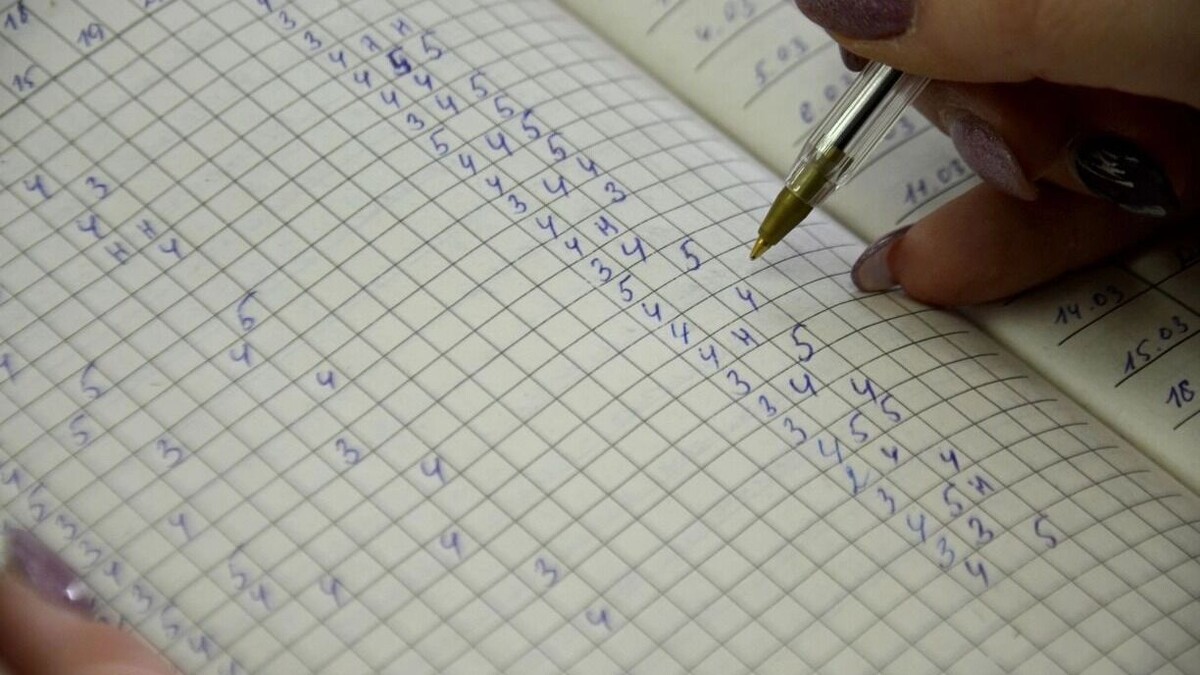 18
19
15
3
3
4 н н
4 5 5
4 4
3 4 5
5 5
4 4 5
4 5
3 4 4
4 3
4 н
3 4
5 5
4
4 4
4 н
3 5
3 4
3 4
4 5 5
2 4
3 4
4 5 н
3 3
4 5
4 3
4 н
н 4
5
4
4
5
5
3
3
4
4
4
3
5
4
4
4
5
3
3
4.03
5.03
11.03
14.03
15.03
16